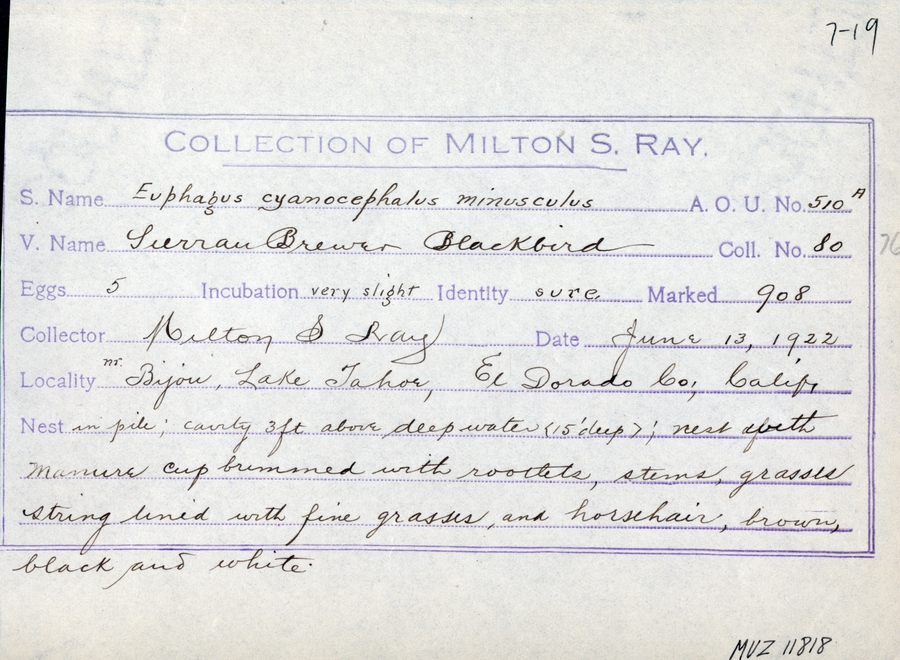 7-19
COLLECTION OF MILTON S. RAY.
S. Name Euphagus cyanocephalus minusculus A. O. U. No. 510 A
V. Name Sierran Brewer Blackbird Coll. No. 80
76
Eggs 5 Incubation very slight Identity sure Marked 908
Collector Milton S Ray Date June 13, 1922
Locality nr. Bijou, Lake Tahoe, El Dorado Co, Calif,
Nest in pile; cavity 3ft above deep water (15' deep); nest with
manure cup brimmed with rootlets, stems, grasses
string lined with fine grasses, and horsehair, brown,
black and white.
MVZ 11818